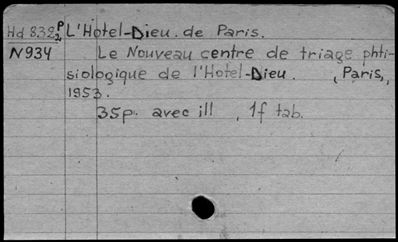 Hd 832 P/2 L'Hotel-Dieu. de Paris.
N934 Le Nouveau centre de triage phti-
siologique de l'Hotel-Dieu. , Paris,,
1953.
35p. avec ill , 1f tab.